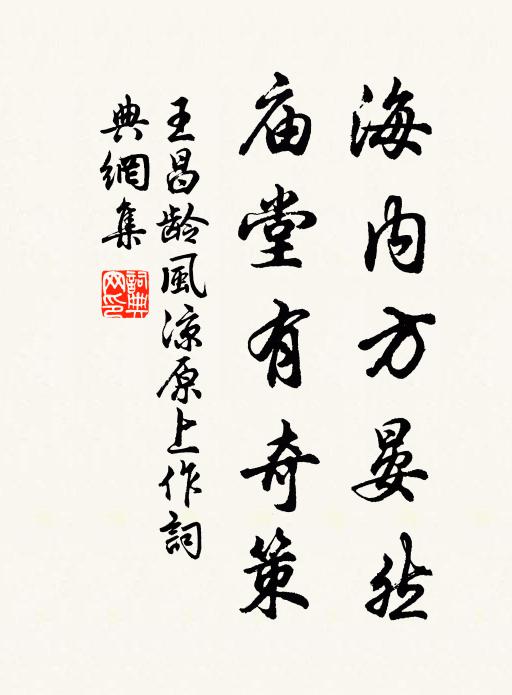 海内方晏然
庙堂有奇策
王昌龄風凉原上作詞
典網集
詞典网印